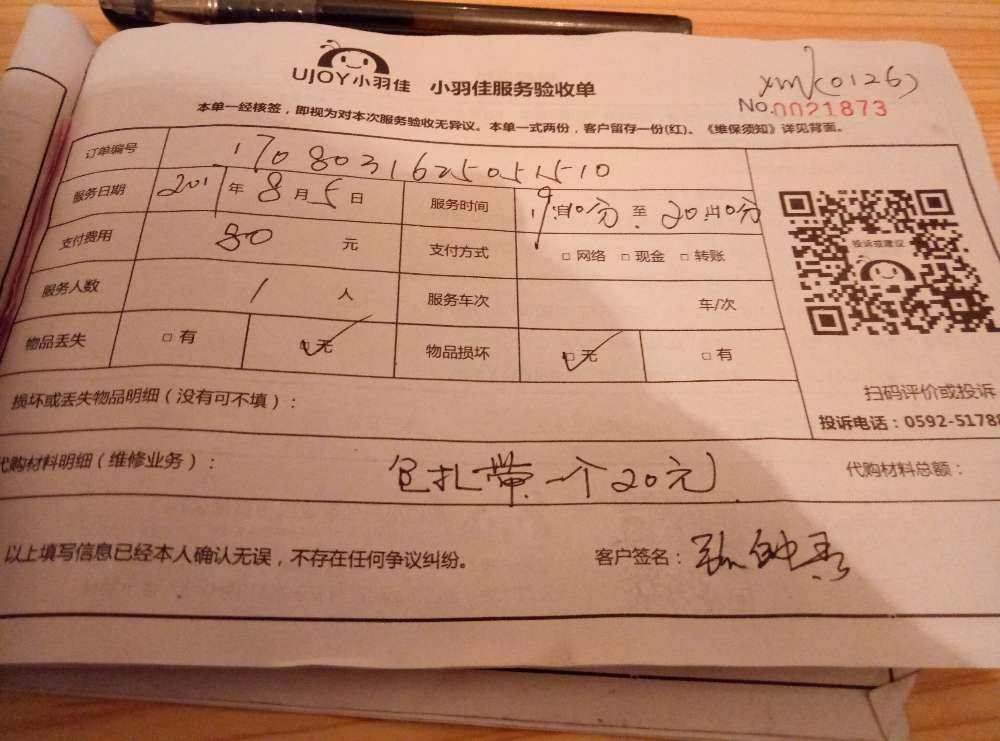 UJOY小羽佳 小羽佳服务验收单
xm(0126)
No.0021873
本单一经核签，即视为对本次服务验收无异议。本单一式两份，客户留存一份(红)。《维保须知》详见背面。
订单编号 1708031625051510
服务日期 201 年 8 月 5 日 服务时间 至
支付费用 80 元 支付方式 □ 网络 □ 现金 □ 转账
投诉或建议
服务人数 1 人 服务车次 车/次
物品丢失 □ 有 □ 无 物品损坏 □ 无 □ 有
损坏或丢失物品明细（没有可不填）：
扫码评价或投诉
投诉电话：0592-5178
代购材料明细（维修业务）： 包扎带一个20元 代购材料总额：
以上填写信息已经本人确认无误，不存在任何争议纠纷。 客户签名：